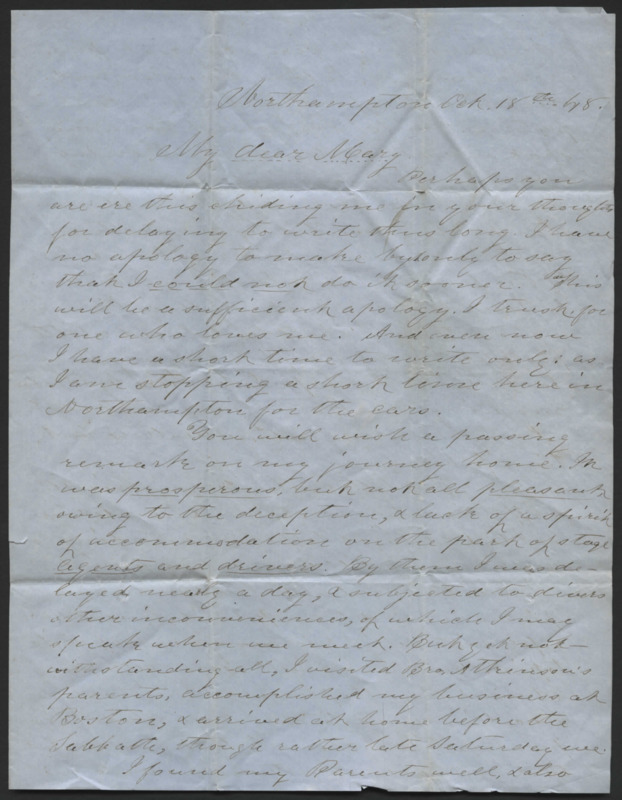 Northampton Oct. 18th /48.
My dear Mary
Perhaps you
are ere this chiding me in your thoughts
for delaying to write thus long. I have
no apology to make by only to say
that I could not do it sooner. This
will be a sufficient apology, I trust, for
one who loves me. And even now
I have a short time to write only; as
I am stopping a short time here in
Northampton for the cars.
You will wish a passing
remark on my journey home. It
was prosperous, but not all pleasant
owing to the deception, & lack of a spirit
of accommodation on the part of stage
agents and drivers. By them I was de
layed nearly a day, & subjected to divers
other inconveniences, of which I may
speak when we meet. But yet not-
withstanding all, I visited Bro. Atkinson's
parents, accomplished my business at
Boston, & arrived at home before the
Sabbath, though rather late Saturday eve.
I found my Parents well, & also